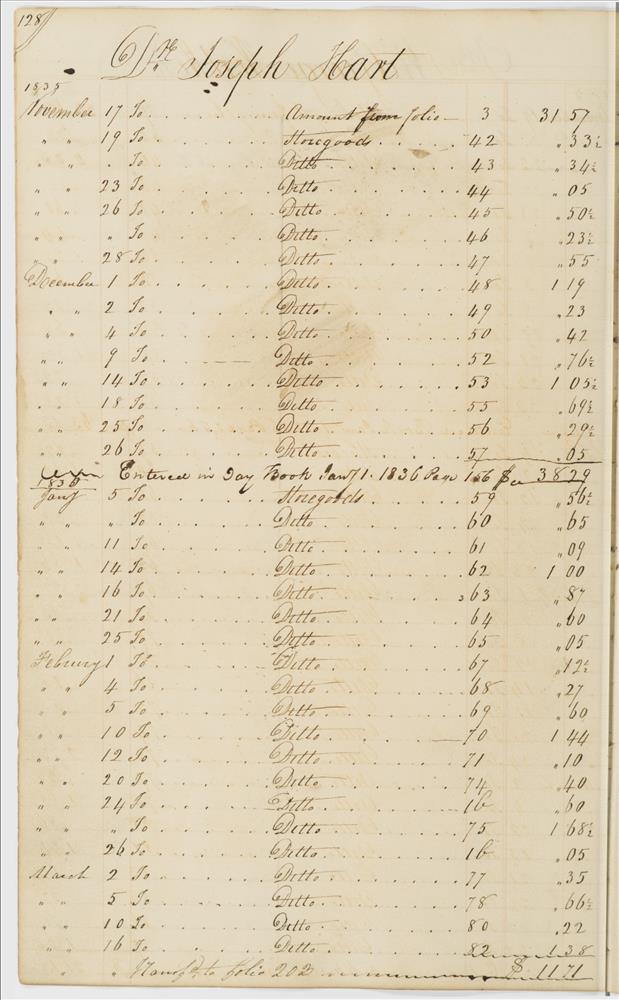 128
Dr Joseph Hart
1835
November 17 To . . . . . . Amount from folio — 3 31 57
" " 19 To . . . . . . Storegoods . . . . . 42 " 33½
" " " To . . . . . . Ditto . . . . . . 43 " 34½
" " 23 To . . . . . . Ditto . . . . . . 44 " 05
" " 26 To . . . . . . Ditto . . . . . . 45 " 50½
" " " To . . . . . . Ditto . . . . . . 46 " 23½
" " 28 To . . . . . . Ditto . . . . . . 47 " 55
December 1 To . . . . . . Ditto . . . . . . 48 1 19
" " 2 To . . . . . . Ditto . . . . . . 49 " 23
" " 4 To . . . . . . Ditto . . . . . . 50 " 42
" " 9 To . . . . . . Ditto . . . . . . 52 " 76½
" " 14 To . . . . . . Ditto . . . . . . 53 1 05½
" " 18 To . . . . . . Ditto . . . . . . 55 " 69½
" " 25 To . . . . . . Ditto . . . . . . 56 " 29½
" " 26 To . . . . . . Ditto . . . . . . 57 " 05
Entered in Day Book Jany 1. 1836 Page 156 $ 38 29
1836
Jany 5 To . . . . . . Storegoods . . . . . 59 " 56½
" " " To . . . . . . Ditto . . . . . . 60 " 65
" " 11 To . . . . . . Ditto . . . . . . 61 " 09
" " 14 To . . . . . . Ditto . . . . . . 62 1 00
" " 16 To . . . . . . Ditto . . . . . . 63 " 87
" " 21 To . . . . . . Ditto . . . . . . 64 " 60
" " 25 To . . . . . . Ditto . . . . . . 65 " 05
Februry 1 To . . . . . . Ditto . . . . . . 67 " 12½
" " 4 To . . . . . . Ditto . . . . . . 68 " 27
" " 5 To . . . . . . Ditto . . . . . . 69 " 60
" " 10 To . . . . . . Ditto . . . . . . 70 1 44
" " 12 To . . . . . . Ditto . . . . . . 71 " 10
" " 20 To . . . . . . Ditto . . . . . . 74 " 40
" " 24 To . . . . . . Ditto . . . . . . ib " 60
" " " To . . . . . . Ditto . . . . . . 75 1 68½
" " 26 To . . . . . . Ditto . . . . . . ib " 05
March 2 To . . . . . . Ditto . . . . . . 77 " 35
" " 5 To . . . . . . Ditto . . . . . . 78 " 66½
" " 10 To . . . . . . Ditto . . . . . . 80 " 22
" " 16 To . . . . . . Ditto . . . . . . 82 1 38
" " Transfd. to folio 202 $ 11 71